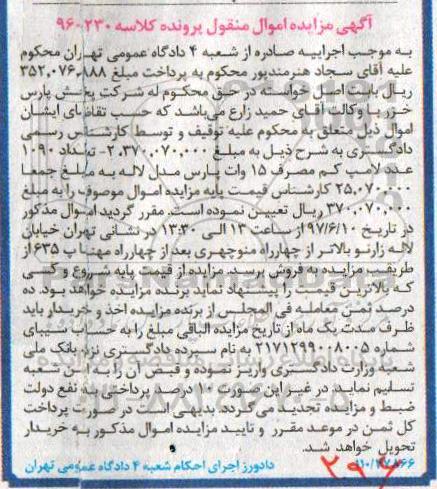 آگهی مزایده اموال منقول پرونده کلاسه ۲۳۰-۹۶
به موجب اجراییه صادره از شعبه ۴ دادگاه عمومی تهران محکوم
علیه آقای سجاد هنرمندپور محکوم به پرداخت مبلغ ۳۵۲,۰۷۶,۸۸۸
ریال بابت اصل خواسته در حق محکوم له شرکت پخش پارس
خزر با وکالت آقای حمید زارع می‌باشد که حسب تقاضای ایشان
اموال ذیل متعلق به محکوم علیه توقیف و توسط کارشناس رسمی
دادگستری به شرح ذیل به مبلغ ۲,۳۷۰,۰۷۰,۰۰۰- تعداد ۱۰۹۰
عدد لامپ کم مصرف ۱۵ وات پارس مدل لاله به مبلغ جمعا
۲۵,۰۷۰,۰۰۰ کارشناس قیمت پایه مزایده اموال موصوف را به مبلغ
۳۷۰,۰۷۰,۰۰۰ ریال تعیین نموده است. مقرر گردید اموال مذکور
در تاریخ ۹۷/۶/۱۰ از ساعت ۱۳ الی ۱۳:۳۰ در نشانی تهران خیابان
لاله زارنو بالاتر از چهارراه منوچهری بعد از چهارراه مهنا پ ۶۳۵ از
طریق مزایده به فروش برسد. مزایده از قیمت پایه شروع و کسی
که بالاترین قیمت را پیشنهاد نماید برنده مزایده خواهد بود. ده
درصد ثمن معامله فی المجلس از برنده مزایده اخذ و خریدار باید
ظرف مدت یک ماه از تاریخ مزایده الباقی مبلغ را به حساب سیبای
شماره ۲۱۷۱۲۹۹۰۰۸۰۰۵ به نام سپرده دادگستری نزد بانک ملی
شعبه وزارت دادگستری واریز نموده و قبض آن را به این شعبه
تسلیم نماید. در غیر این صورت ۱۰ درصد پرداختی به نفع دولت
ضبط و مزایده تجدید می‌گردد. بدیهی است در صورت پرداخت
کل ثمن در موعد مقرر و تایید مزایده اموال مذکور به خریدار
تحویل خواهد شد.
۱۱۰/۴۷۸۶۶ دادورز اجرای احکام شعبه ۴ دادگاه عمومی تهران